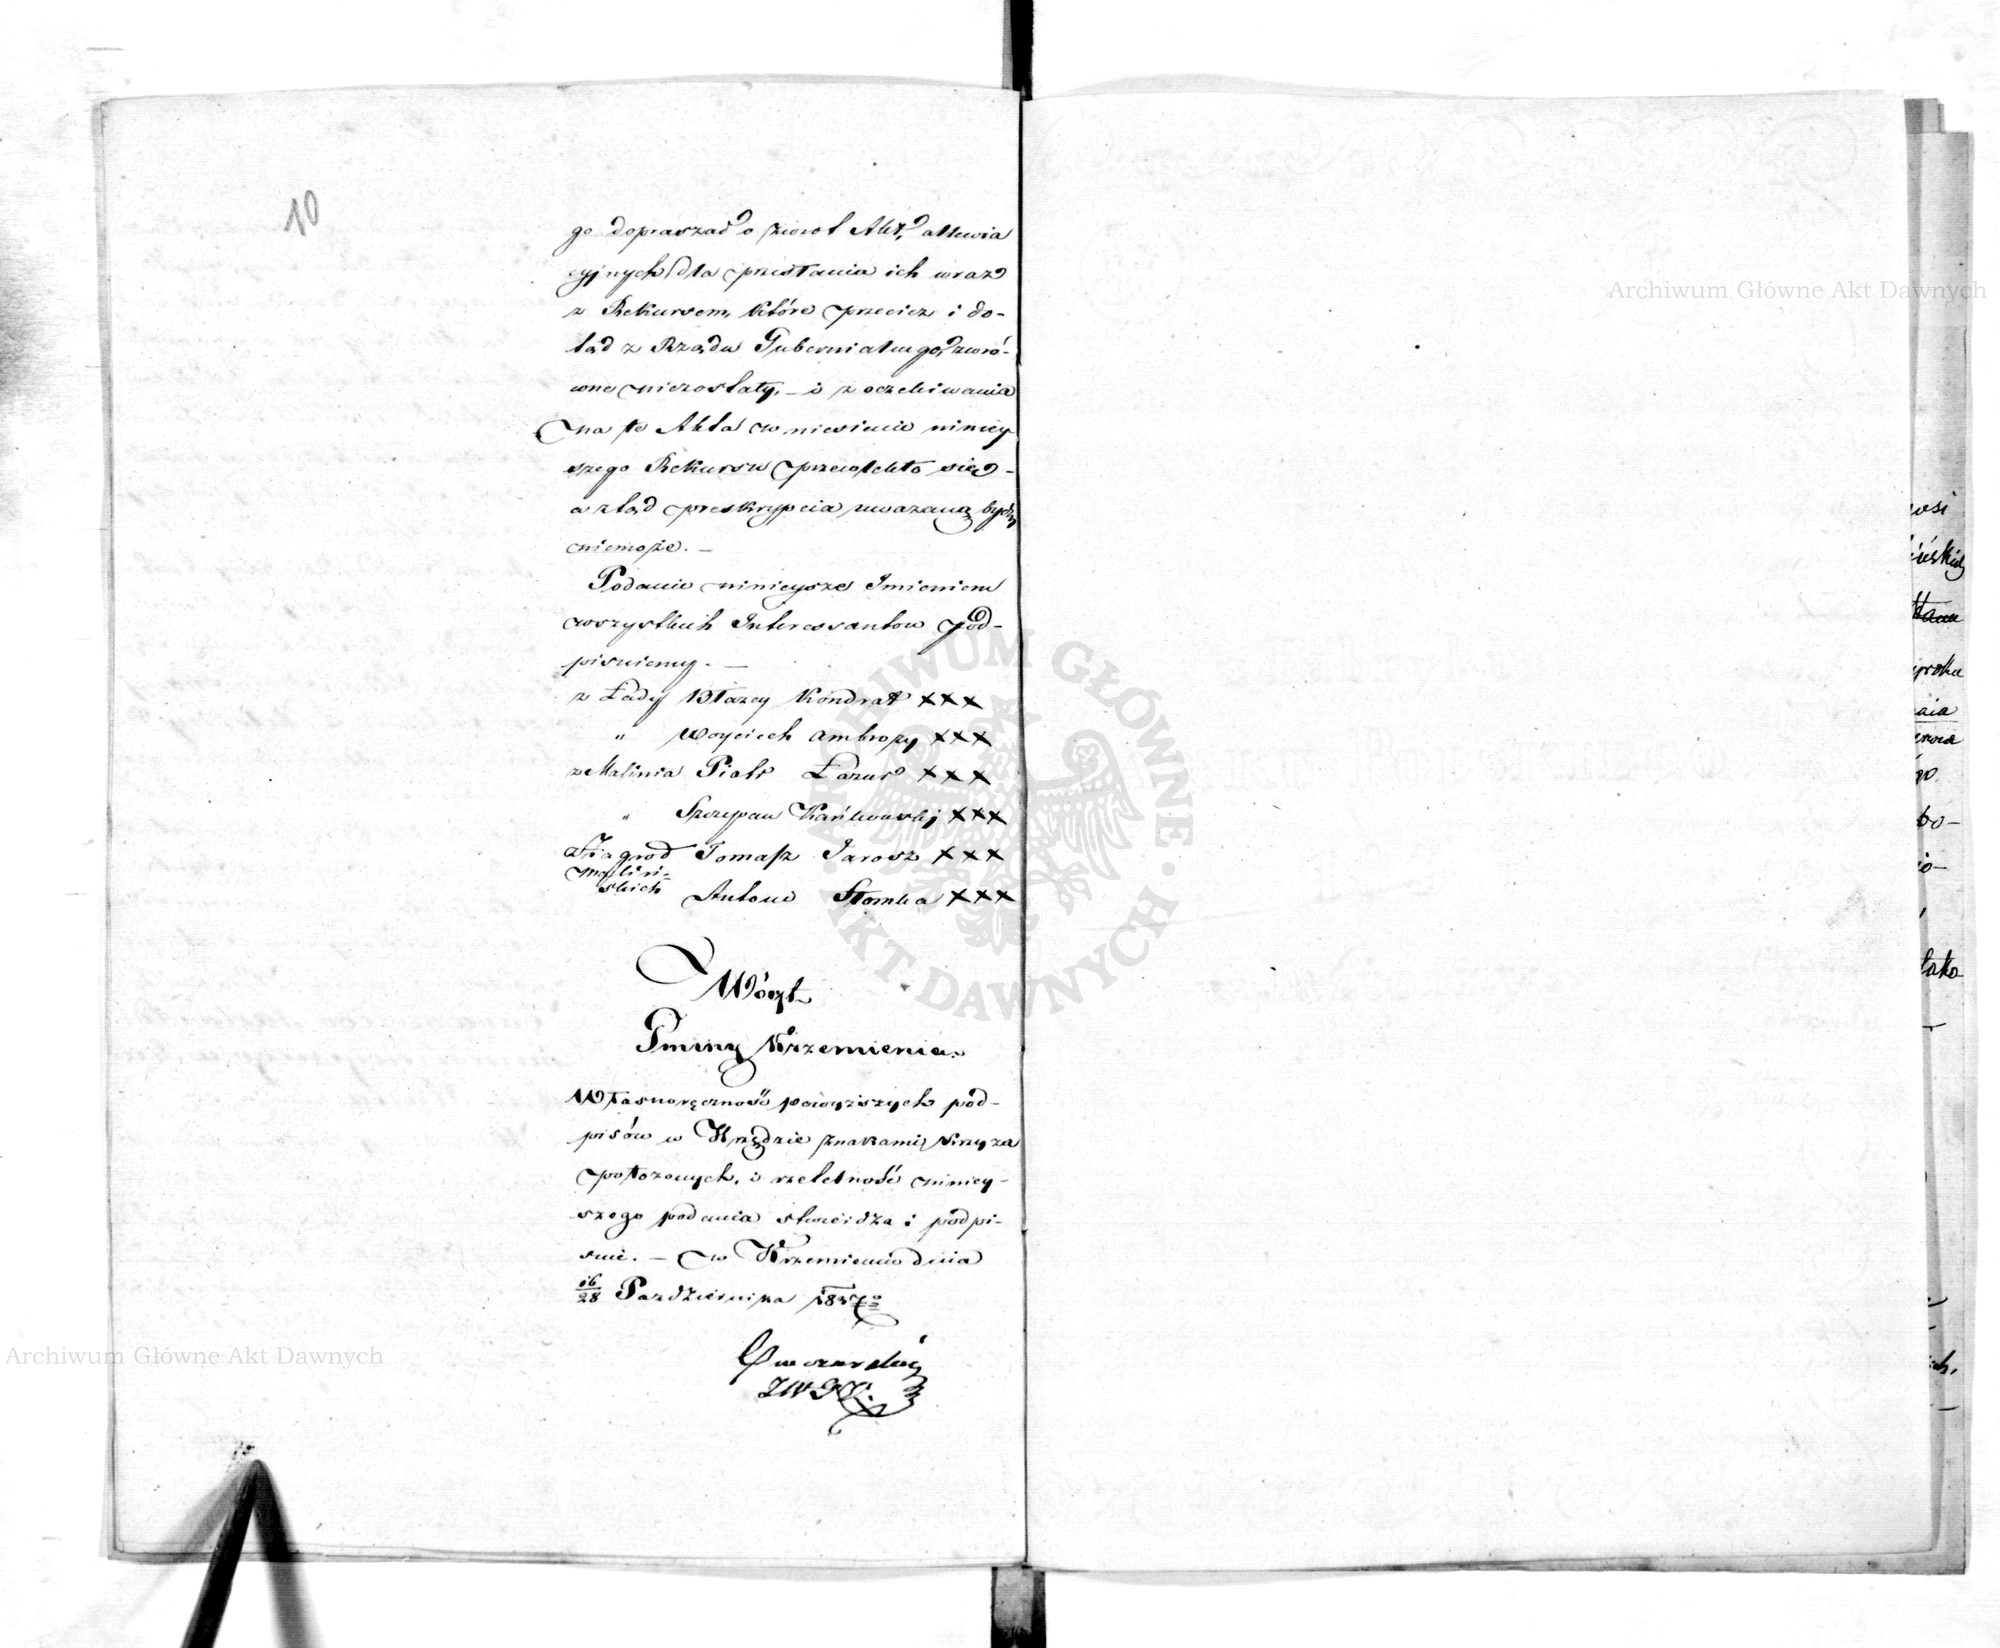 10
go dopraszać o zwrot Akt, allewia
cyjnych dla przesłania ich wraz
z Rekursem, które przecież i do-
tąd z Rządu Gubernialnego, zwró-
cone niezostały, – i z oczekiwania
na te Akta wniesienie niniey
szego Rekursu przewlekło się –
a ztąd preskrypcia uważaną bydź
niemoże. –
Podanie ninieysze Imieniem
wszystkich Interessantow pod-
pisuiemy. –
z Łady Błazey Kondrat XXX
" Woyciech Ambroży XXX
z Malinia Piotr Łazur XXX
" Szczepan Kańkowskij XXX
z Zagrod Tomasz Jarosz XXX
malin-
skich Antoni Słomka XXX
Wóyt
Gminy Krzemienia.
Własnoręczność powyższych pod-
pisów w Urzędzie znakami Krzyża
położonych, i rzetelność niniey-
szego podania stwierdza i podpi-
suie. – w Krzemieniu dnia
16/28 Pazdziernika
Z W G K.
Archiwum Główne Akt Dawnych
Archiwum Główne Akt Dawnych
ARCHIWUM GŁÓWNE · AKT DAWNYCH ·